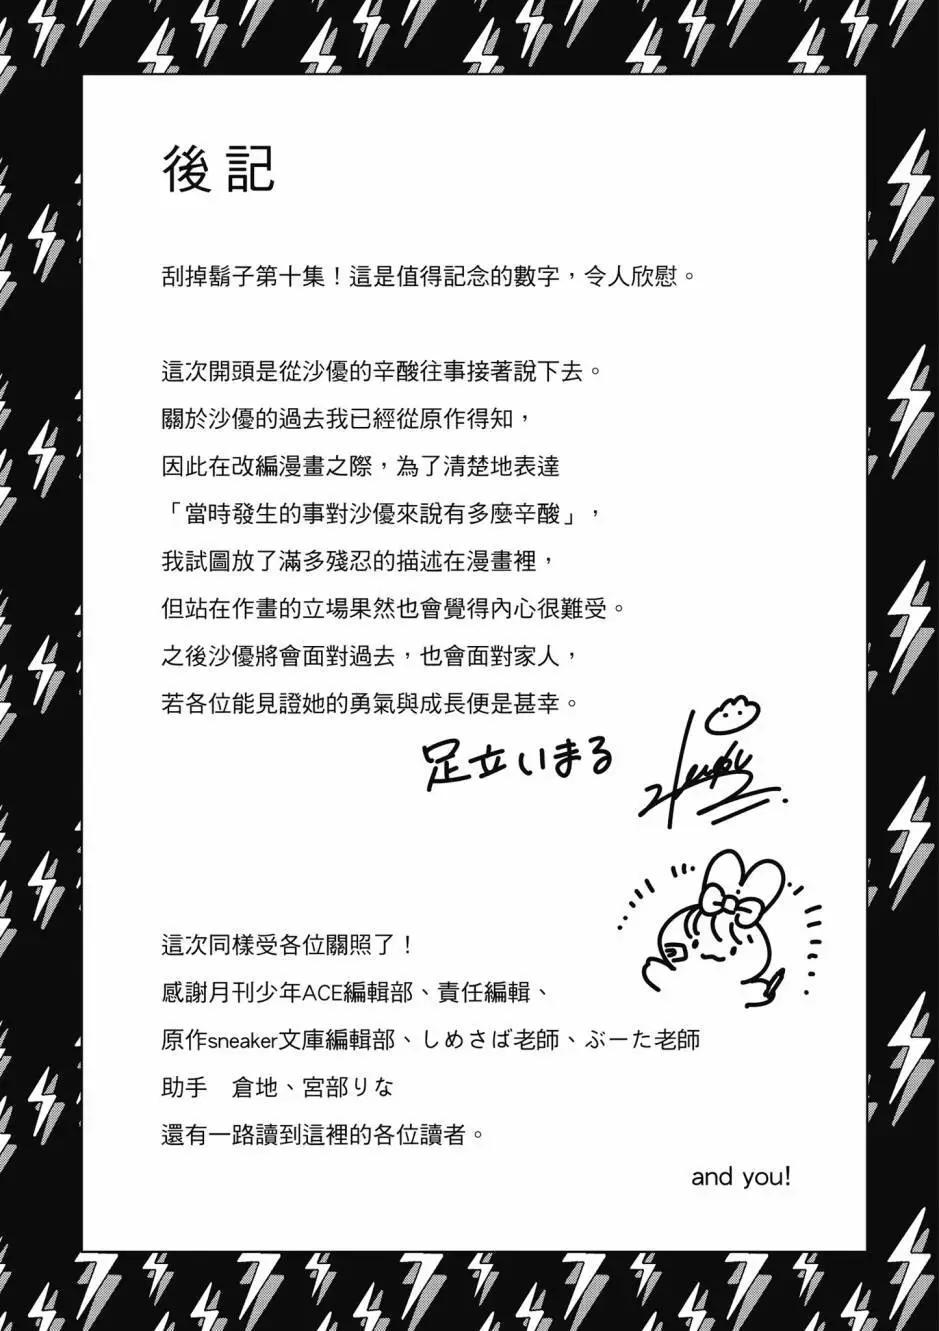 後記
刮掉鬍子第十集！這是值得記念的數字，令人欣慰。
這次開頭是從沙優的辛酸往事接著說下去。
關於沙優的過去我已經從原作得知，
因此在改編漫畫之際，為了清楚地表達
「當時發生的事對沙優來說有多麼辛酸」，
我試圖放了滿多殘忍的描述在漫畫裡，
但站在作畫的立場果然也會覺得內心很難受。
之後沙優將會面對過去，也會面對家人，
若各位能見證她的勇氣與成長便是甚幸。
足立いまる
這次同樣受各位關照了！
感謝月刊少年ACE編輯部、責任編輯、
原作sneaker文庫編輯部、しめさば老師、ぶーた老師
助手　倉地、宮部りな
還有一路讀到這裡的各位讀者。
and you!